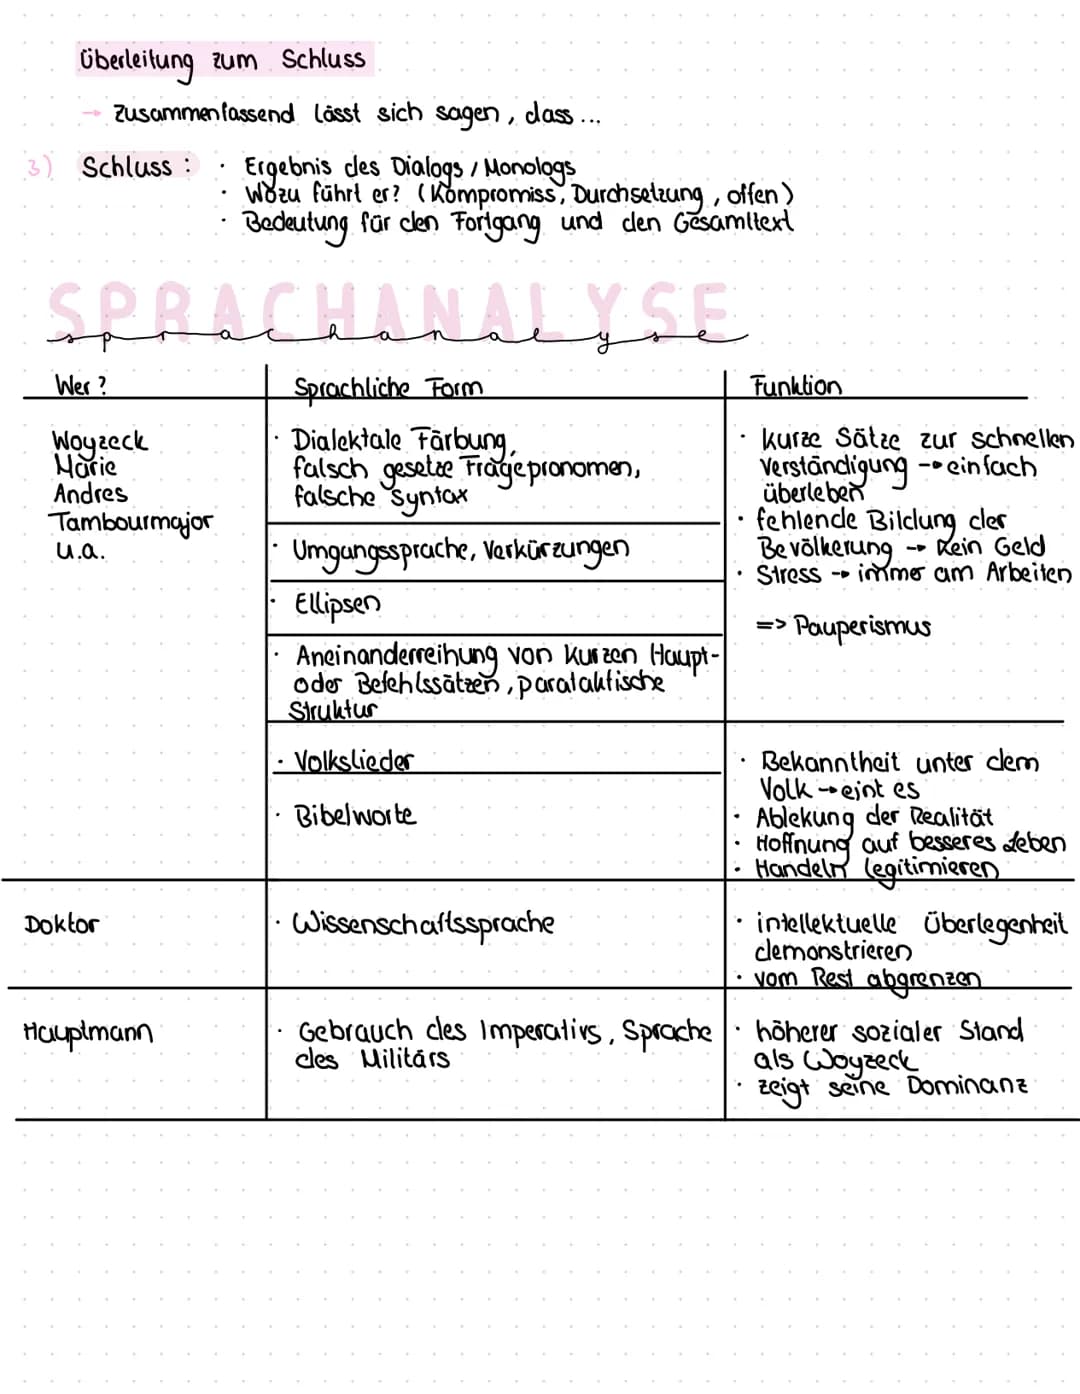 Überleitung zum Schluss
→ Zusammenfassend lässt sich sagen, dass...
3) Schluss: · Ergebnis des Dialogs / Monologs
· Wozu führt er? (Kompromiss, Durchsetzung, offen)
· Bedeutung für den Fortgang und den Gesamttext
SPRACHANALYSE
sprachanalyse
Wer? Sprachliche Form Funktion
Woyzeck
Marie
Andres
Tambourmajor
u.a.
· Dialektale Färbung,
falsch gesetze Fragepronomen,
falsche Syntax
· Umgungssprache, Verkürzungen
· Ellipsen
· Aneinanderreihung von kurzen Haupt-
oder Befehlssätzen, parataktische
Struktur
· kurze Sätze zur schnellen
Verständigung → einfach
überleben
· fehlende Bildung der
Bevölkerung → kein Geld
· Stress → immer am Arbeiten
=> Pauperismus
· Volkslieder
· Bibelworte
· Bekanntheit unter dem
Volk → eint es
· Ablekung der Realität
· Hoffnung auf besseres Leben
· Handeln legitimieren
Doktor
· Wissenschaftssprache
· intellektuelle Überlegenheit
demonstrieren
· vom Rest abgrenzen
Hauptmann
· Gebrauch des Imperativs, Sprache
des Militärs
· höherer sozialer Stand
als Woyzeck
· zeigt seine Dominanz